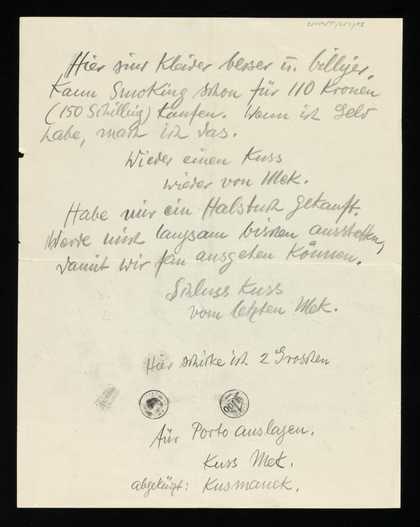 Hier sind Kleider besser u. billiger.
Kann Smoking schon für 110 Kronen
(150 Schilling) kaufen. Wenn ich Geld
habe, mach ich das.
Wieder einen Kuss
wieder von Mek.
Habe mir ein Halstuch gekauft.
Werde mich langsam bischen ausstatten,
damit wir fein ausgehen können.
Schluss Kuss
vom letzten Mek.
Hier schicke ich 2 Groschen
für Porto auslagen.
Kuss Mek.
abgekürzt: Kusmanek.